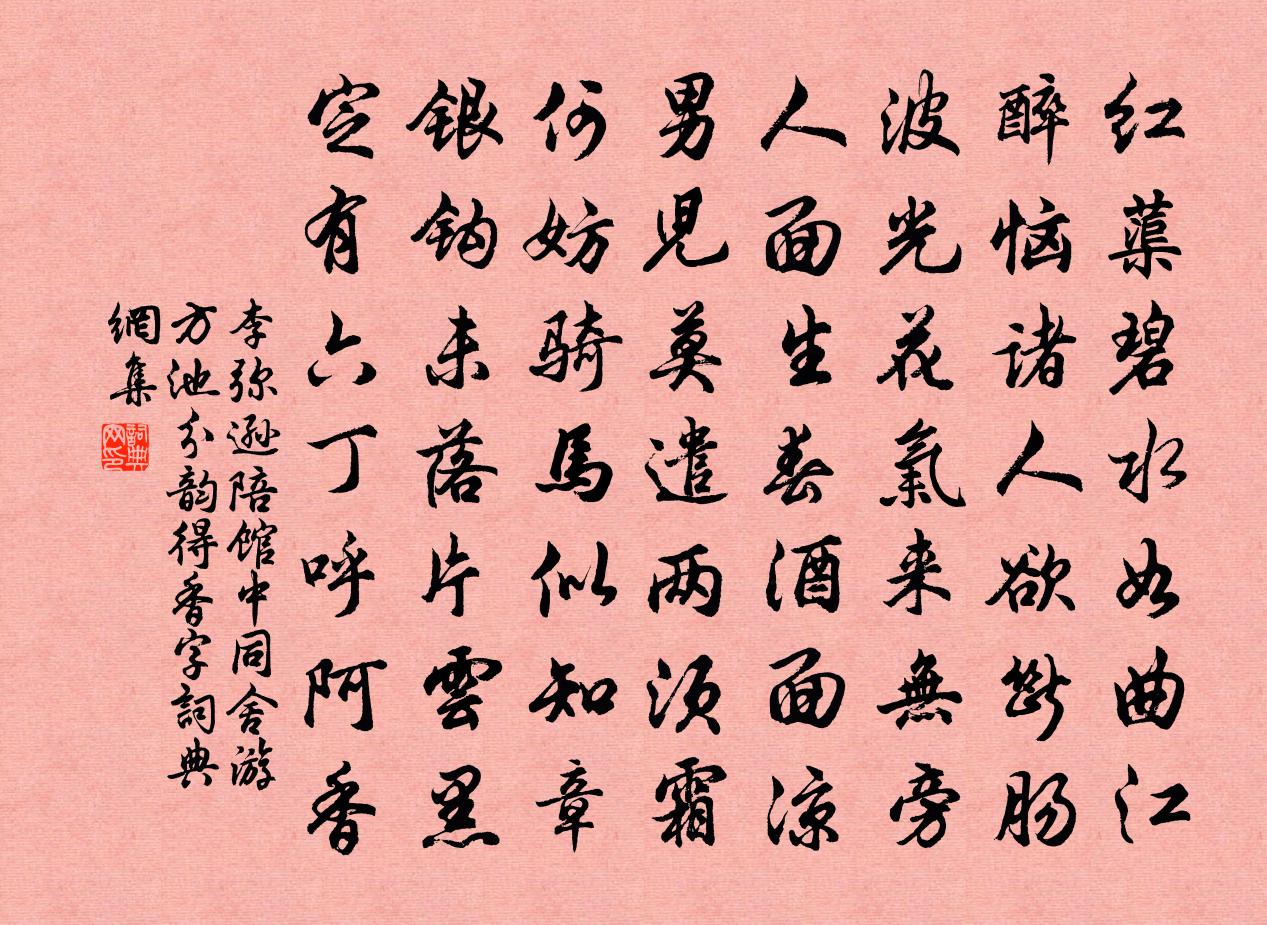 红蕖碧水如曲江
醉恼诸人欲断肠
波光花氣来無旁
人面生春酒面涼
男児莫遣两须霜
何妨骑馬似知章
銀钩未落片雲黑
定有六丁呼阿香
李弥遜陪馆中同舍游
方池分韵得香字詞典
網集
詞典
网印